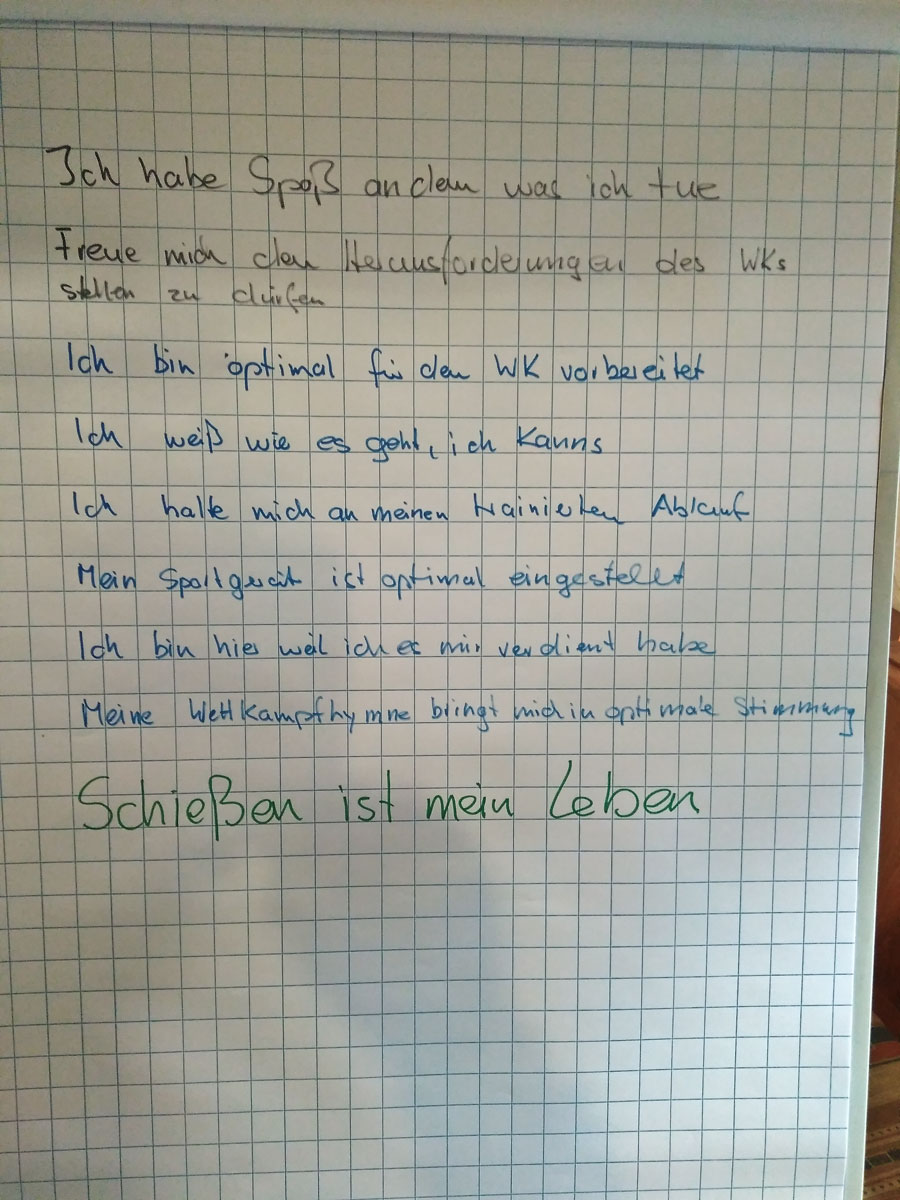 Ich habe Spaß an dem was ich tue
Freue mich den Herausforderungen des WKs
stellen zu dürfen
Ich bin optimal für den WK vorbereitet
Ich weiß wie es geht, ich kanns
Ich halte mich an meinen trainierten Ablauf
Mein Sportgerät ist optimal eingestellt
Ich bin hier weil ich es mir verdient habe
Meine Wettkampfhymne bringt mich in optimale Stimmung
Schießen ist mein Leben